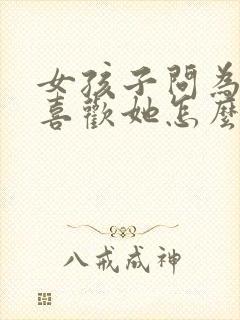 女孩子問為
喜歡她怎麼
八戒成神